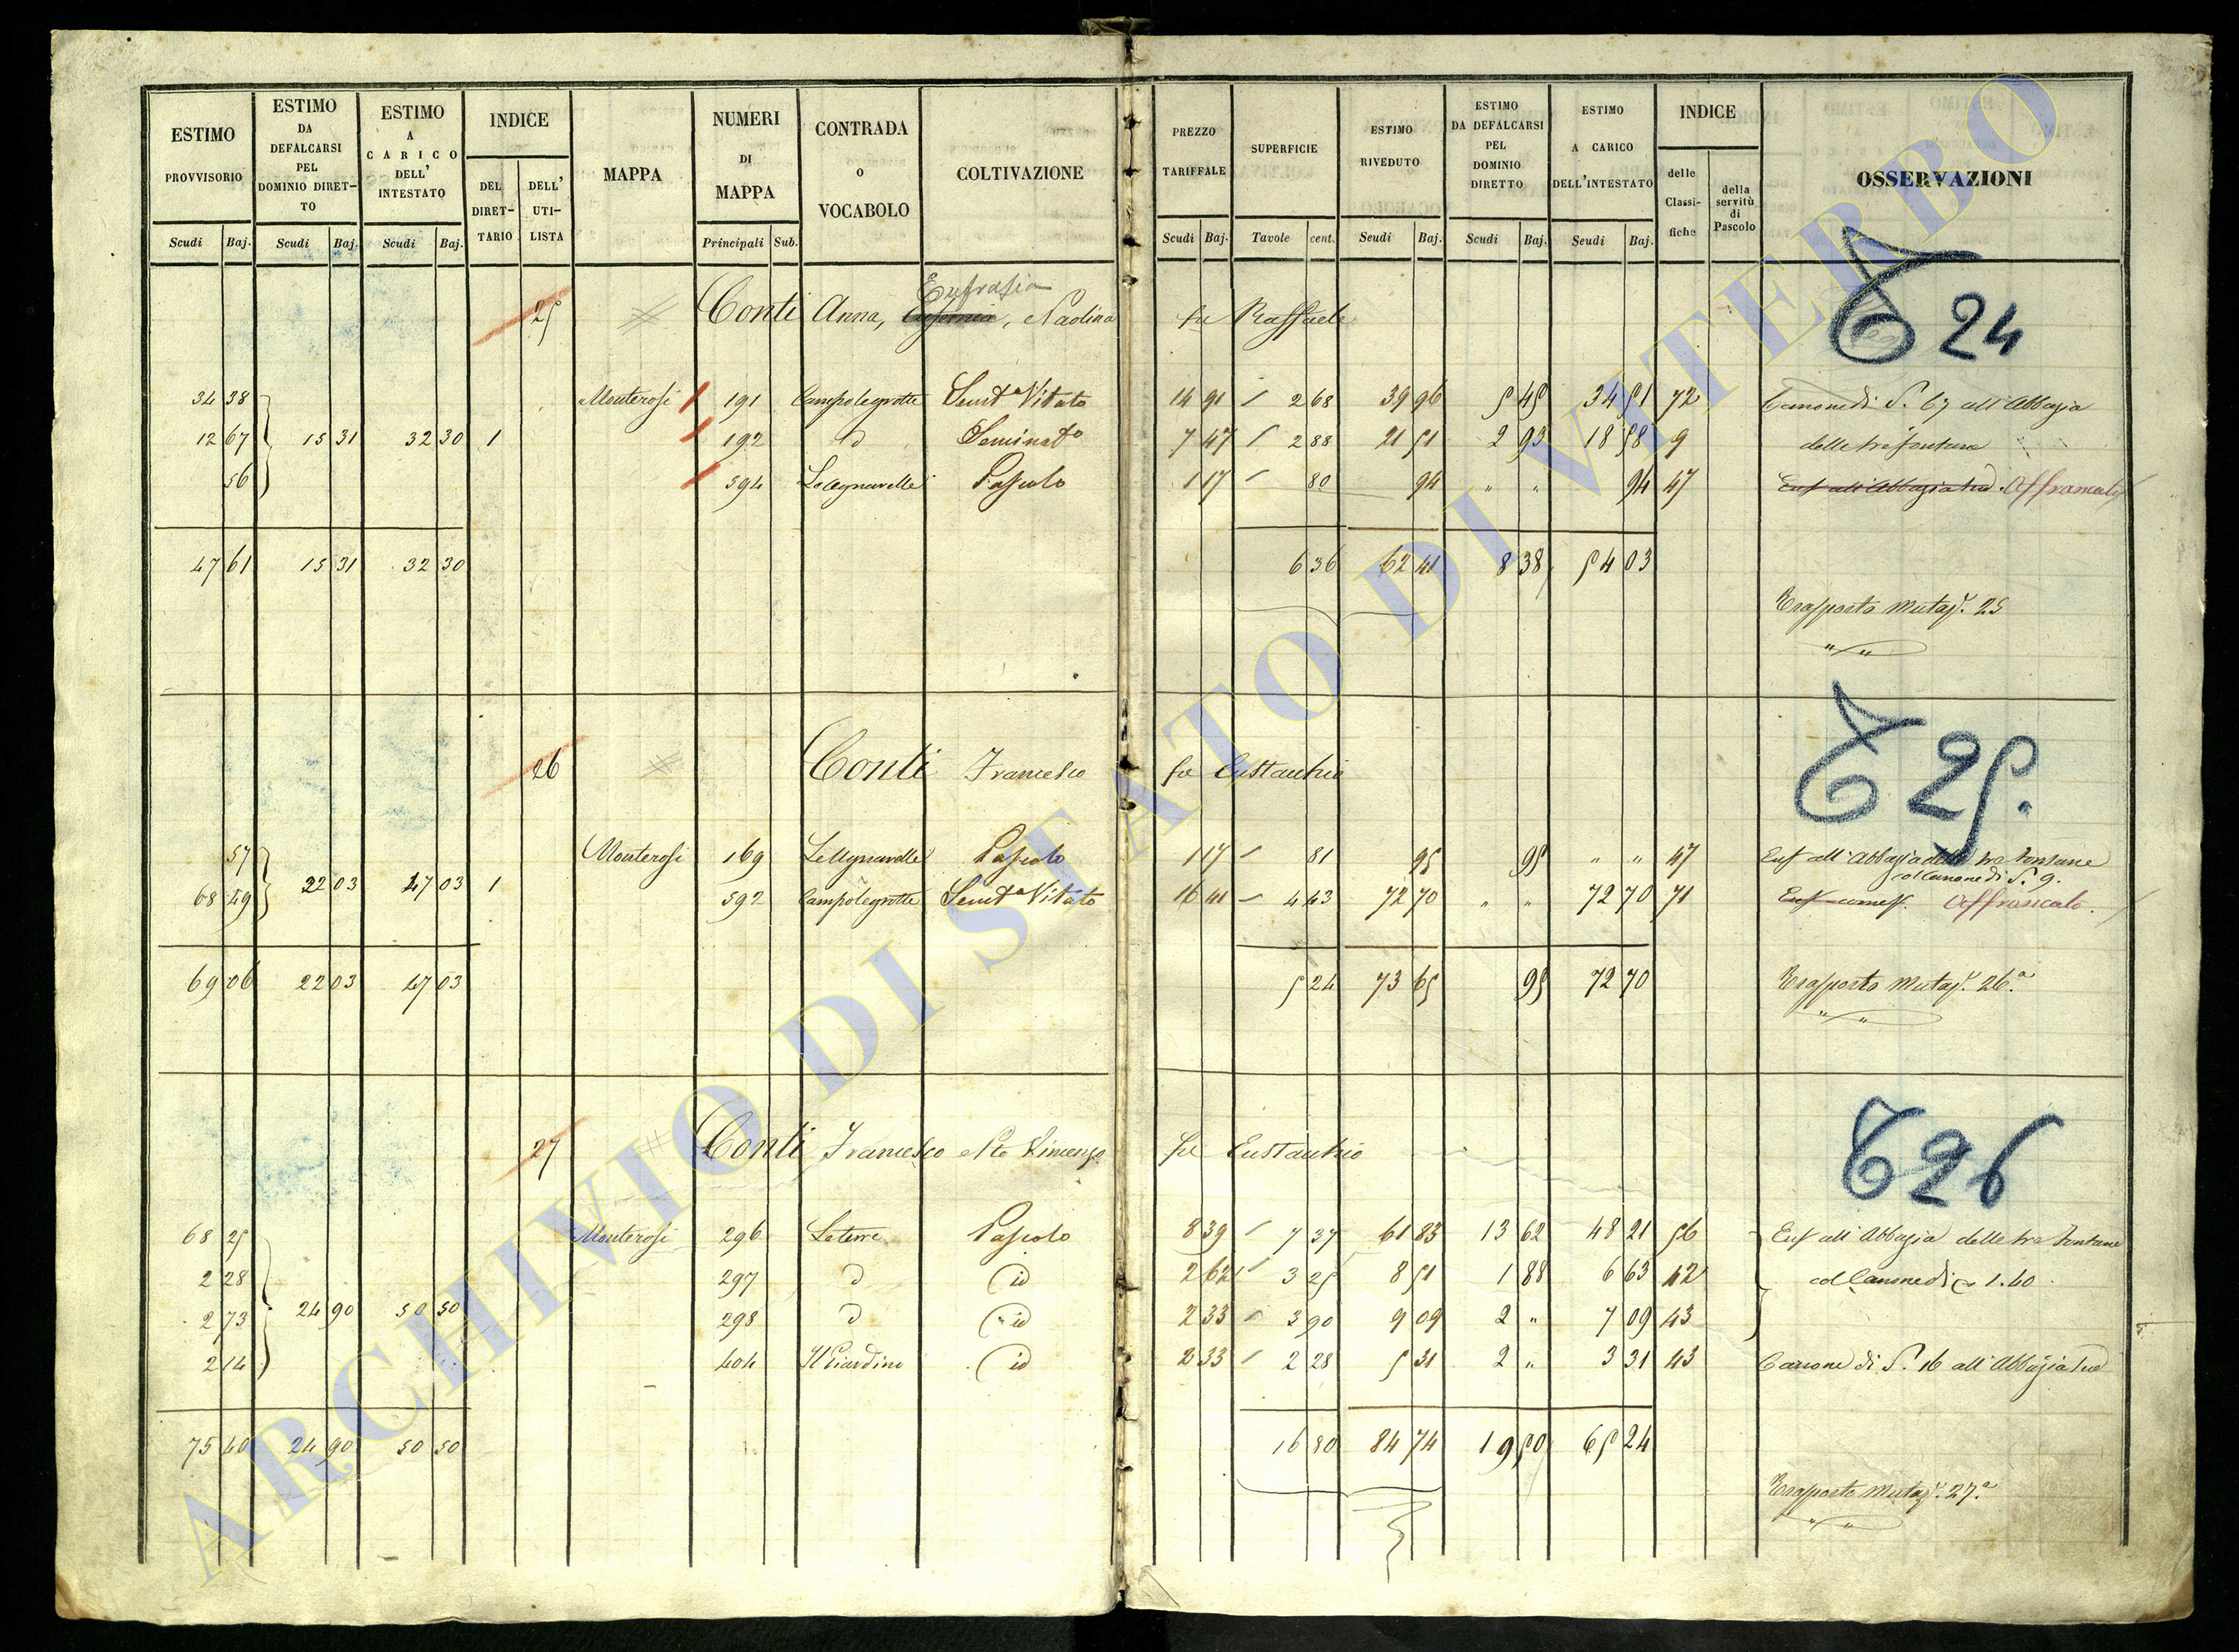 ESTIMO PROVVISORIO
ESTIMO DA DEFALCARSI PEL DOMINIO DIRET-TO
ESTIMO A CARICO DELL' INTESTATO
INDICE
DEL DIRET-TARIO
DELL' UTI-LISTA
MAPPA
NUMERI DI MAPPA
CONTRADA O VOCABOLO
COLTIVAZIONE
PREZZO TARIFFALE
SUPERFICIE
ESTIMO RIVEDUTO
ESTIMO DA DEFALCARSI PEL DOMINIO DIRETTO
ESTIMO A CARICO DELL'INTESTATO
INDICE
delle Classi-fiche
della servitù di Pascolo
OSSERVAZIONI
Scudi Baj. Scudi Baj. Scudi Baj. Principali Sub. Scudi Baj. Tavole cent. Scudi Baj. Scudi Baj. Scudi Baj.
T 24
Eufrasia
25 Conti Anna, , Paolina fu Raffaele
34 38 Monterosi 191 Campolegrotte Semt° Vitato 14 91 2 68 39 96 5 45 34 51 72 Canone di S. 67 all'Abbazia
12 67 15 31 32 30 1 192 d Seminat° 7 47 2 88 21 51 2 93 18 58 9 delle tre fontane
56 394 Pascolo 1 17 80 94 " " 94 47 Enf all'Abbazia sud. Affrancato
47 61 15 31 32 30 6 36 62 41 8 38 54 03
Trasporto Mutaz. 25
T 25.
26 Conti Francesco fu Eustachio
57 Monterosi 169 Pascolo 1 17 81 95 95 " " 47 Enf all'Abbazia delle tre fontane
col Canone di S. 9.
68 49 22 03 47 03 1 592 Campolegrotte Semt° Vitato 16 41 4 43 72 70 " " 72 70 71 Enf come s. Affrancato.
69 06 22 03 47 03 5 24 73 65 95 72 70 Trasporto Mutaz. 26.a
T 26
27 Conti Francesco e Vincenzo fu Eustachio
68 25 Monterosi 296 Leterre Pascolo 8 39 7 37 61 83 13 62 48 21 56 Enf all'Abbazia delle tre fontane
2 28 297 d id 2 62 3 25 8 51 1 88 6 63 42 col Canone di 1.40
2 73 24 90 50 50 298 d id 2 33 3 90 9 09 2 " 7 09 43
2 14 404 Il Giardino id 2 33 2 28 5 31 2 " 3 31 43 Canone di S. 16 all'Abbazia sud
75 40 24 90 50 50 16 80 84 74 19 50 65 24
Trasporto Mutaz. 27.a
ARCHIVIO DI STATO DI VITERBO